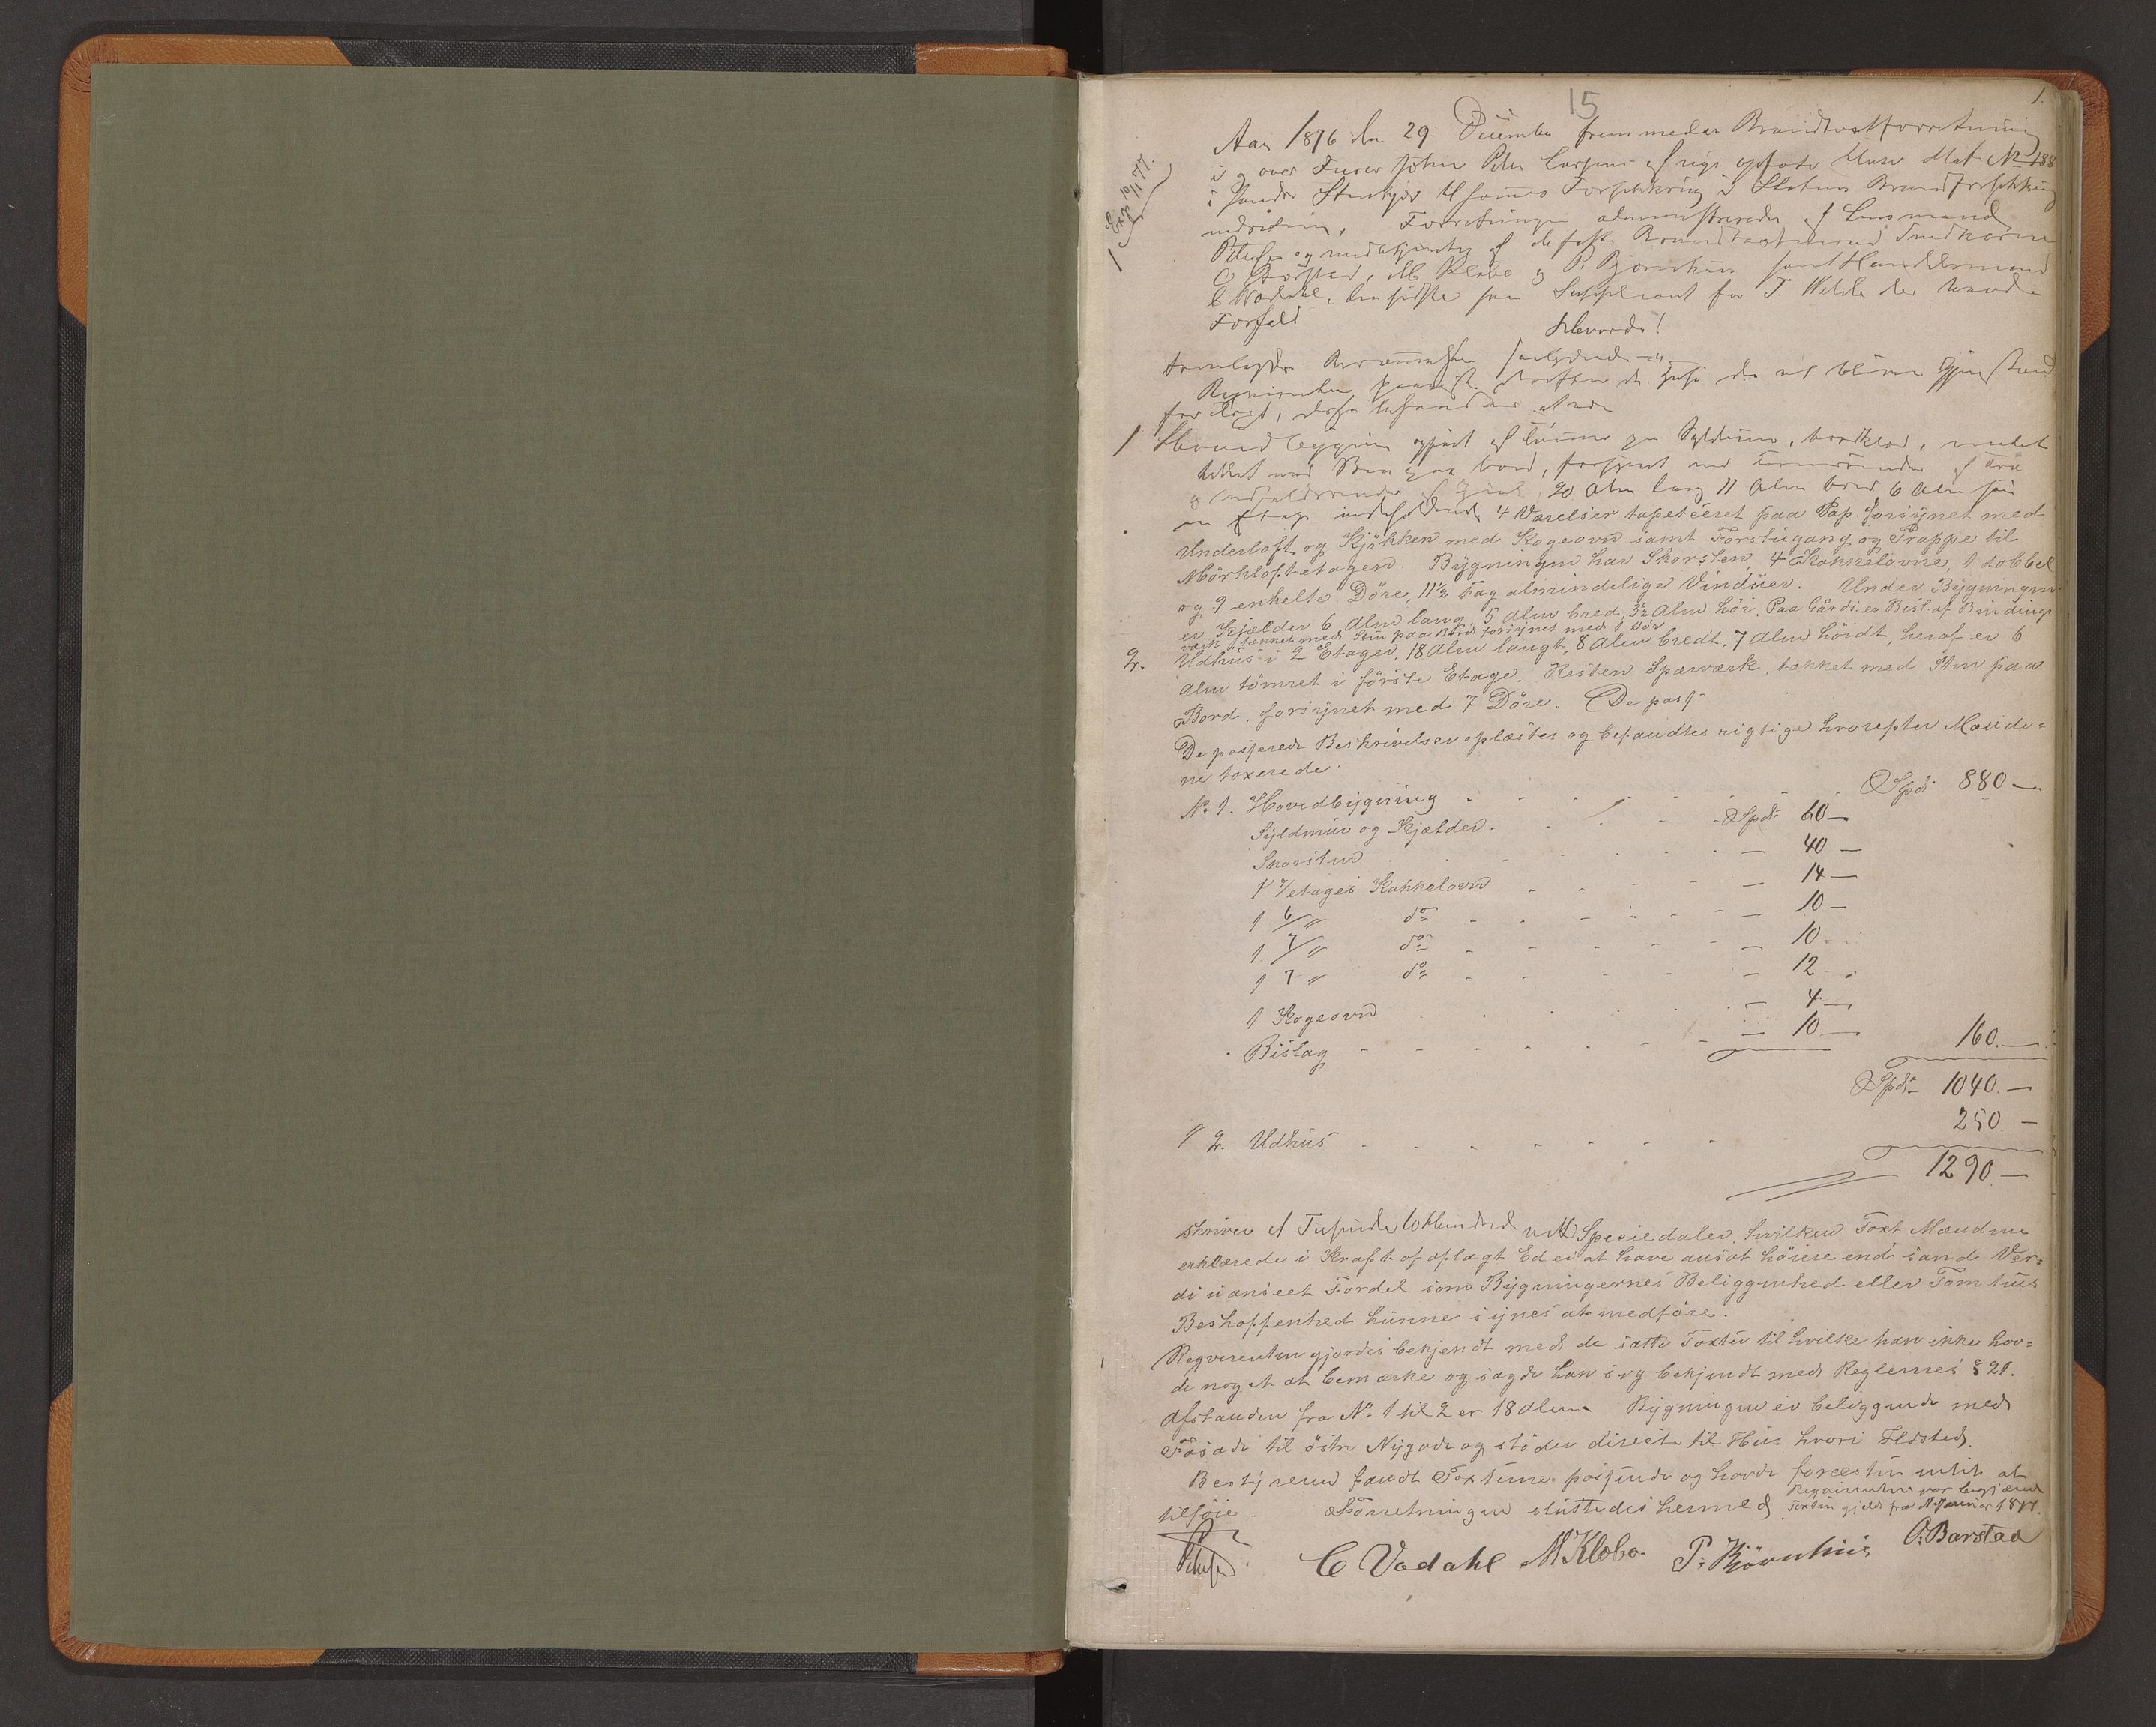 15
1.
Exp 10/1 77.
Aar 1876 den 29 December fremmedes Brandtaxtforretning
i og over Furer John Peter Larsens  opførte Huse Mat No 188
i Søndre Stenkjær til sammes Forsikkring i Statens Brandforsikkrings
indretning, Forretningen administreredes af Lensmand
Petersen og medbetjentes af de faste Brandtaxtmænd Snedkerne
O Barstad, M Klæbo og P. Bjørnhuus samt Handelsmand
C Wodahl, den sidste som Suppleant for T. Welde der havde
Forfald
Hvorda!
Fremlagdes  saalydende
Rekvirenten paaviste derefter de Huse der vil blive Gjenstand
for Taxt, disse befandtes at være
1 Hovedbygning opført af Tømmer paa Syldmur, bordklæd, malet
tækket med Sten paa bord, forsynet med Tagrender af Træ
og Nedfaldsrender af Zink, 20 Alen lang 11 Alen bred, 6 Alen høi
en Etage indeholdende 4 Værelser tapetceret paa Pap. forsynet med
Underloft og Kjøkken med Kogeovn samt Forstugang og Trappe til
Mørkloftetagen. Bygningen har Skorsten, 4 Kakkelovne, 1 dobbel
og 9 enkelte Døre, 11½ Fag almindelige Vinduer. Under Bygningen
er Kjælder 6 Alen lang, 5 Alen bred, 3½ Alen høi. Paa Gårds. er Bisl. af Bindings
værk tækket med Sten paa Bord forsynet med 1 Dør
2. Udhus i 2 Etager, 18 Alen langt, 8 Alen bredt, 7 Alen høidt, heraf er 6
Alen tømret i første Etage. Resten Spærværk, tækket med Sten paa
Bord, forsynet med 7 Døre. De pass
De passerede Beskrivelser oplæstes og befandtes rigtige hvorefter Mænde-
ne taxerede:
No 1. Hovedbygning Spd. 880 —
Syldmur og Kjælder. Spdr 60 —
Skorsten — 40 —
1 7/etages Kakkelovn — 14 —
1 6/" do — 10 —
1 7/" do — 10
1 7 " do — 12
1 Kogeovn — 4 —
Bislag — 10 — 160. —
Spdr 1040. —
" 2. Udhus 250 —
1290. —
skriver et Tusinde to Hundrede  Speciedaler, hvilken Taxt Mændene
erklærede i Kraft af aflagt Ed ei at have ansat høiere end sand Vær-
di uanseet Fordel som Bygningernes Beliggenhed eller Tomtens
Beskaffenhed kunne synes at medføre.
Reqvirenten gjordes bekjendt med de satte Taxter til hvilke han ikke hav-
de noget at bemærke og sagde han sig bekjendt med Reglernes § 21.
Afstanden fra No 1 til 2 er 18 Alen. Bygningen er beliggende med
Fasade til østre Nygade og støder directe til Hus hvori Ildsted.
Bestyreren fandt Taxterne passende og havde forresten intet at
tilføie. Forretningen sluttedes hermed Reqvirenten var begjærende
Taxten gjeld. fra 1 Januar 1877.
Petersen C Vodahl M Klæbo P. Bjørnhuus O. Barstad